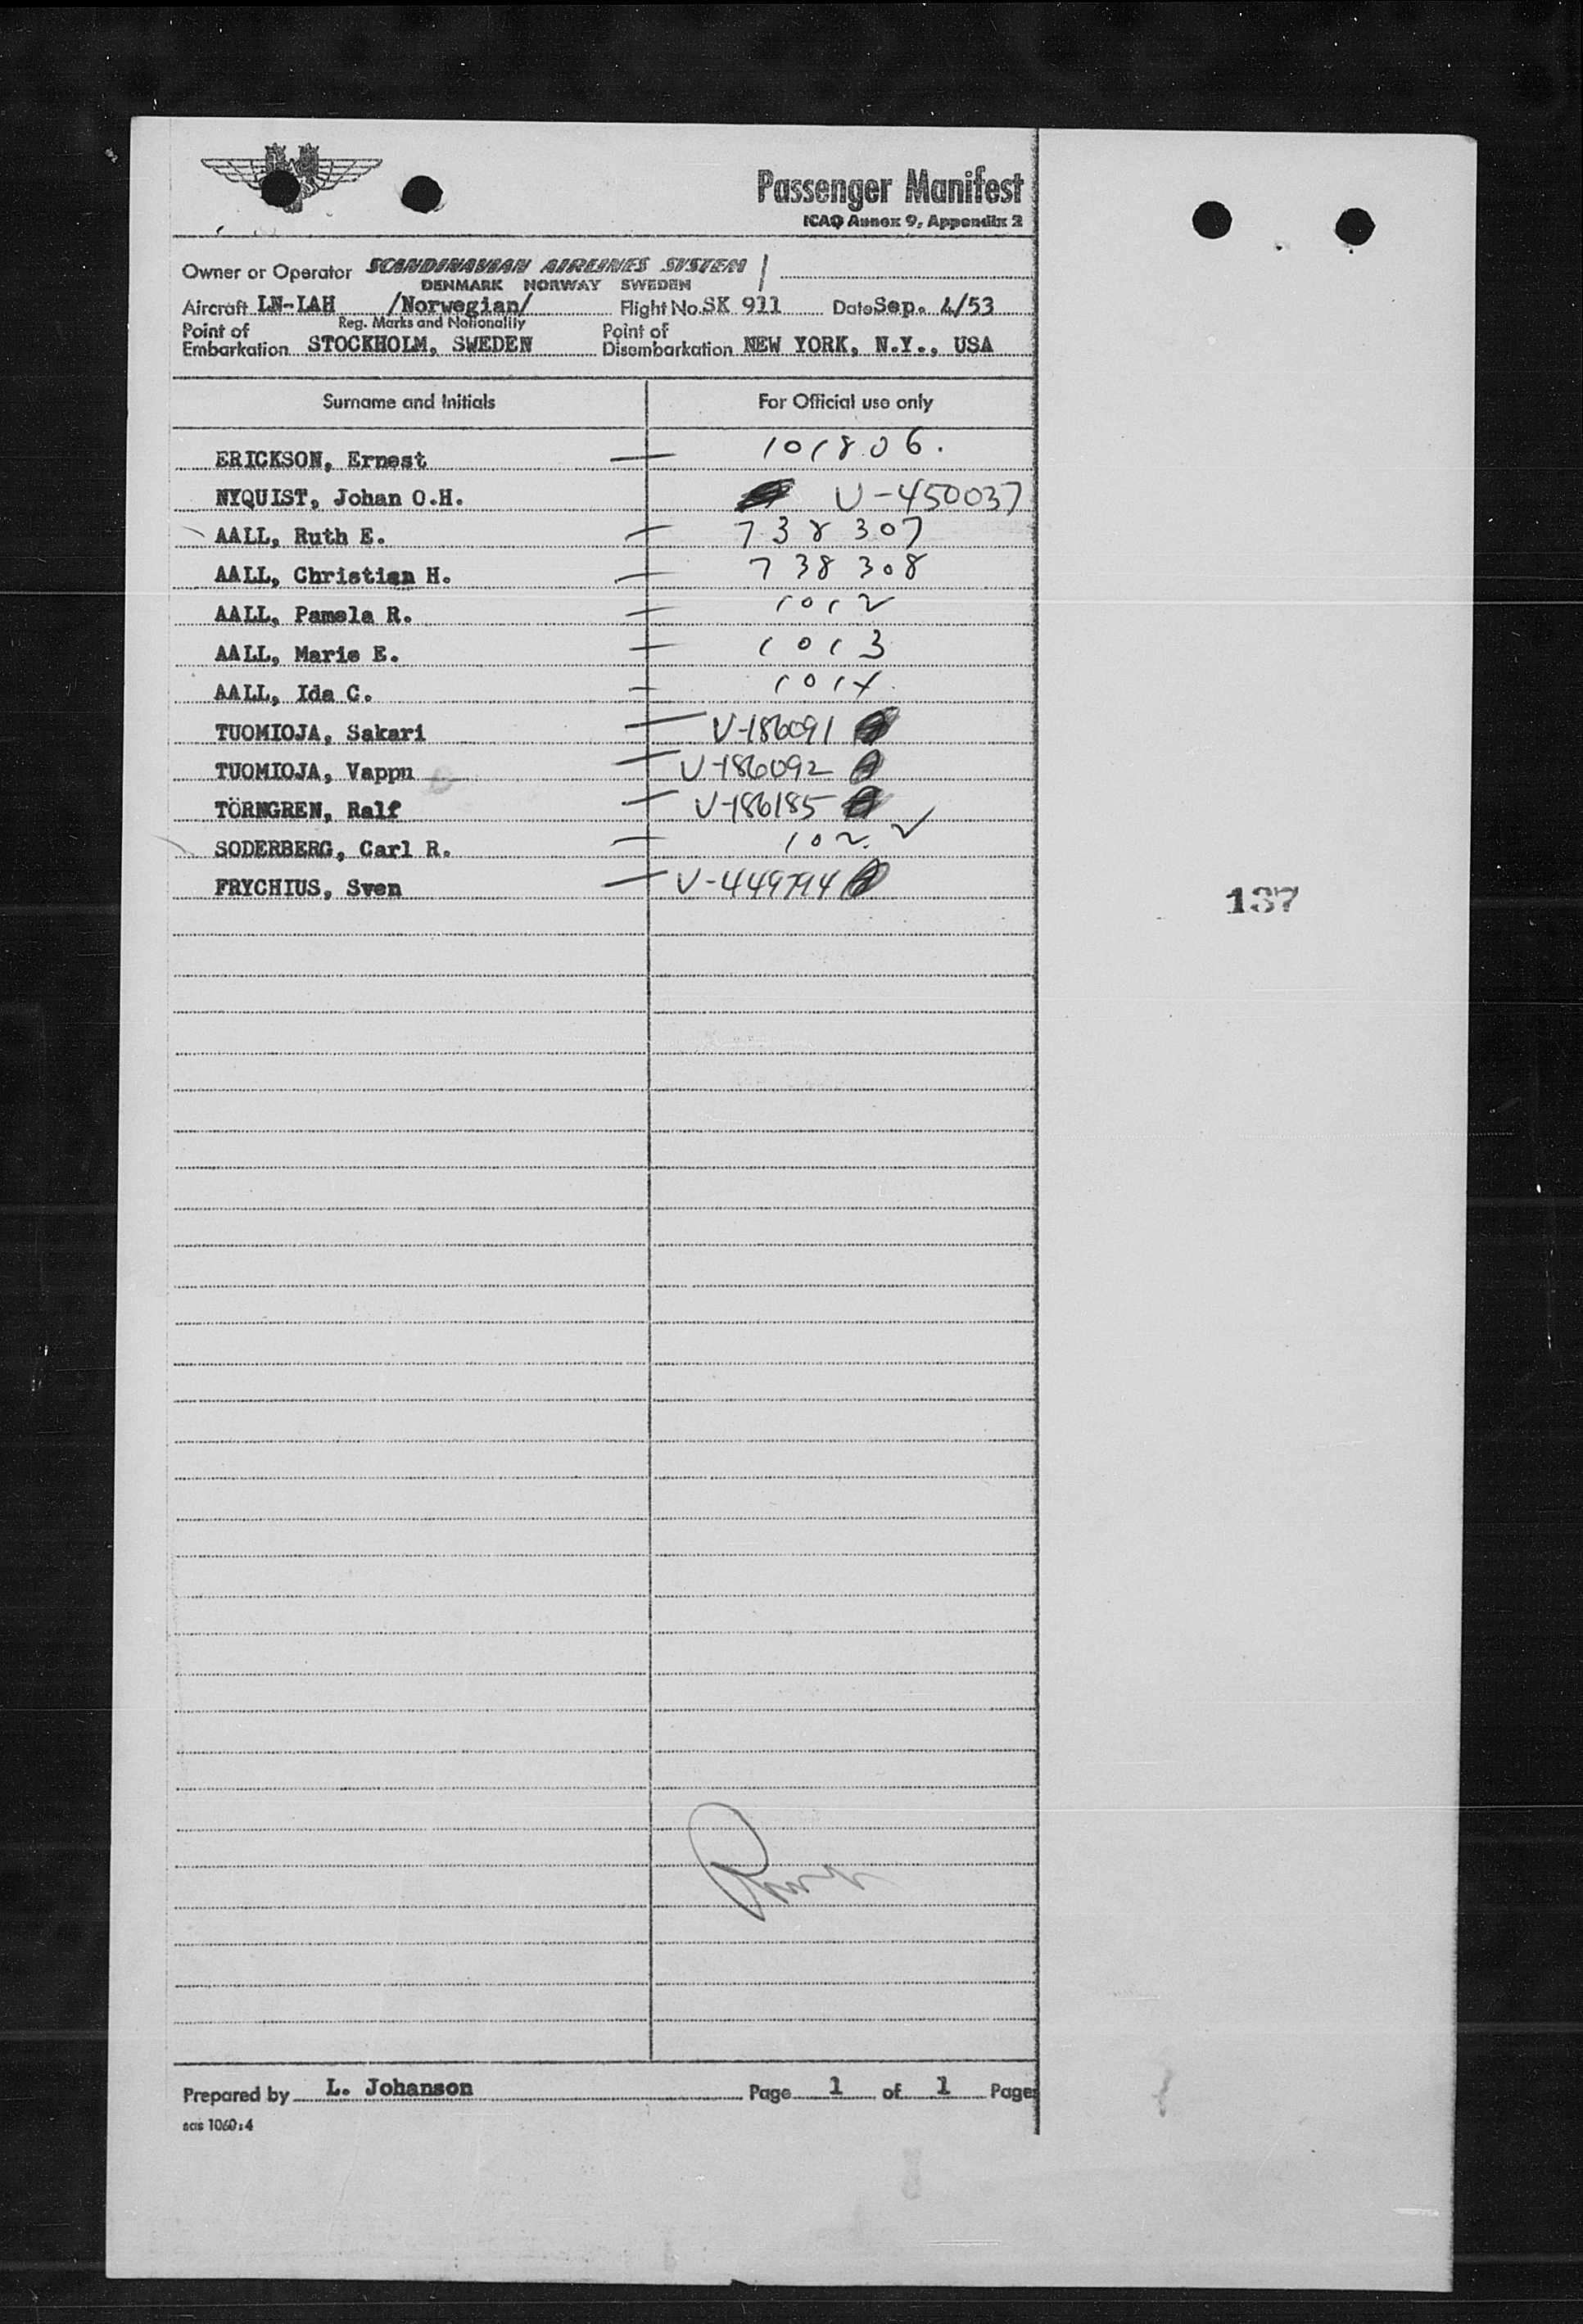 Passenger Manifest
ICAO Annex 9, Appendix 2
Owner or Operator SCANDINAVIAN AIRLINES SYSTEM
DENMARK NORWAY SWEDEN
Aircraft LN-LAH /Norwegian/ Flight No. SK 911 Date Sep. 4/53
Reg. Marks and Nationality
Point of Embarkation STOCKHOLM, SWEDEN Point of Disembarkation NEW YORK, N.Y., USA
Surname and Initials For Official use only
ERICKSON, Ernest — 101806.
NYQUIST, Johan O.H. U-450037
AALL, Ruth E. — 738307
AALL, Christian H. — 738308
AALL, Pamela R. — 1012
AALL, Marie E. — 1013
AALL, Ida C. — 1014
TUOMIOJA, Sakari — V-186091
TUOMIOJA, Vappu — V-186092
TÖRNGREN, Ralf — V-186185
SODERBERG, Carl R. — 102.2
FRYCHIUS, Sven — V-449794
137
Prepared by L. Johanson Page 1 of 1 Pages
sas 1060:4